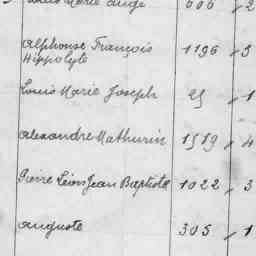 Louis Marie Ange 606 2
Alphonse François 1196 3
Hippolyte
Louis Marie Joseph 25 1
Alexandre Mathurin 1519 4
Pierre Léon Jean Baptiste 1022 3
Auguste 305 1